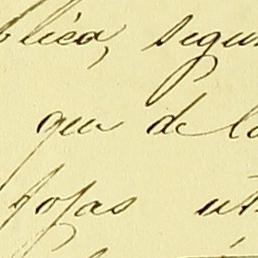 blica, segun
que de la
fojas úti